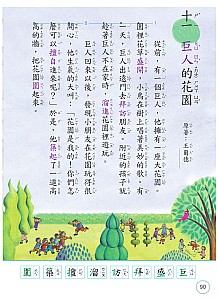 十一 巨人的花園
原著／王爾德
從前，有一個巨人，他擁有一座大花
園。園裡花草盛開，小鳥在樹上唱著美妙的歌。有
一天，巨人出遠門去拜訪朋友。附近的孩子就
趁著巨人不在家時，溜進花園裡遊玩。
巨人回來以後，發現小朋友在花園玩得很
開心，他生氣的大吼：「花園是我的，你們怎
麼可以擅自進來呢？」於是，他築起了一道高
高的牆，把花園圍起來。
巨 盛 拜 訪 溜 擅 築 圍
90